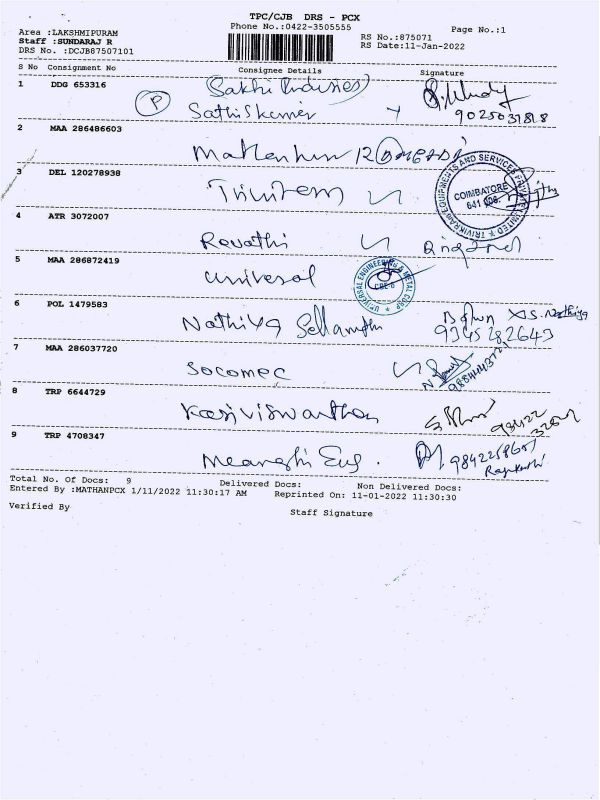 TPC/CJB DRS - PCX
Phone No.:0422-3505555
Page No.:1
Area :LAKSHMIPURAM
Staff :SUNDARAJ R
DRS No. :DCJB87507101
RS No.:875071
RS Date:11-Jan-2022
S No Consignment No Consignee Details Signature
1 DDG 653316 Sakthi Industries
P Sathiskumar
9025031818
2 MAA 286486603
3 DEL 120278938
TRIVIKRAM EQUIPMENTS AND SERVICES PRIVATE LIMITED
COIMBATORE
4 ATR 3072007
Revathi
5 MAA 286872419
Universal
UNIVERSAL ENGINEERING & METAL CORP
CBE-6
6 POL 1479583
Nathiya S. Nathiya
9345282643
7 MAA 286037720
Socomec
8 TRP 6644729
Kasiviswanthan
9 TRP 4708347
Meanghi Eng.
Total No. Of Docs: 9 Delivered Docs: Non Delivered Docs:
Entered By :MATHANPCX 1/11/2022 11:30:17 AM Reprinted On: 11-01-2022 11:30:30
Verified By Staff Signature